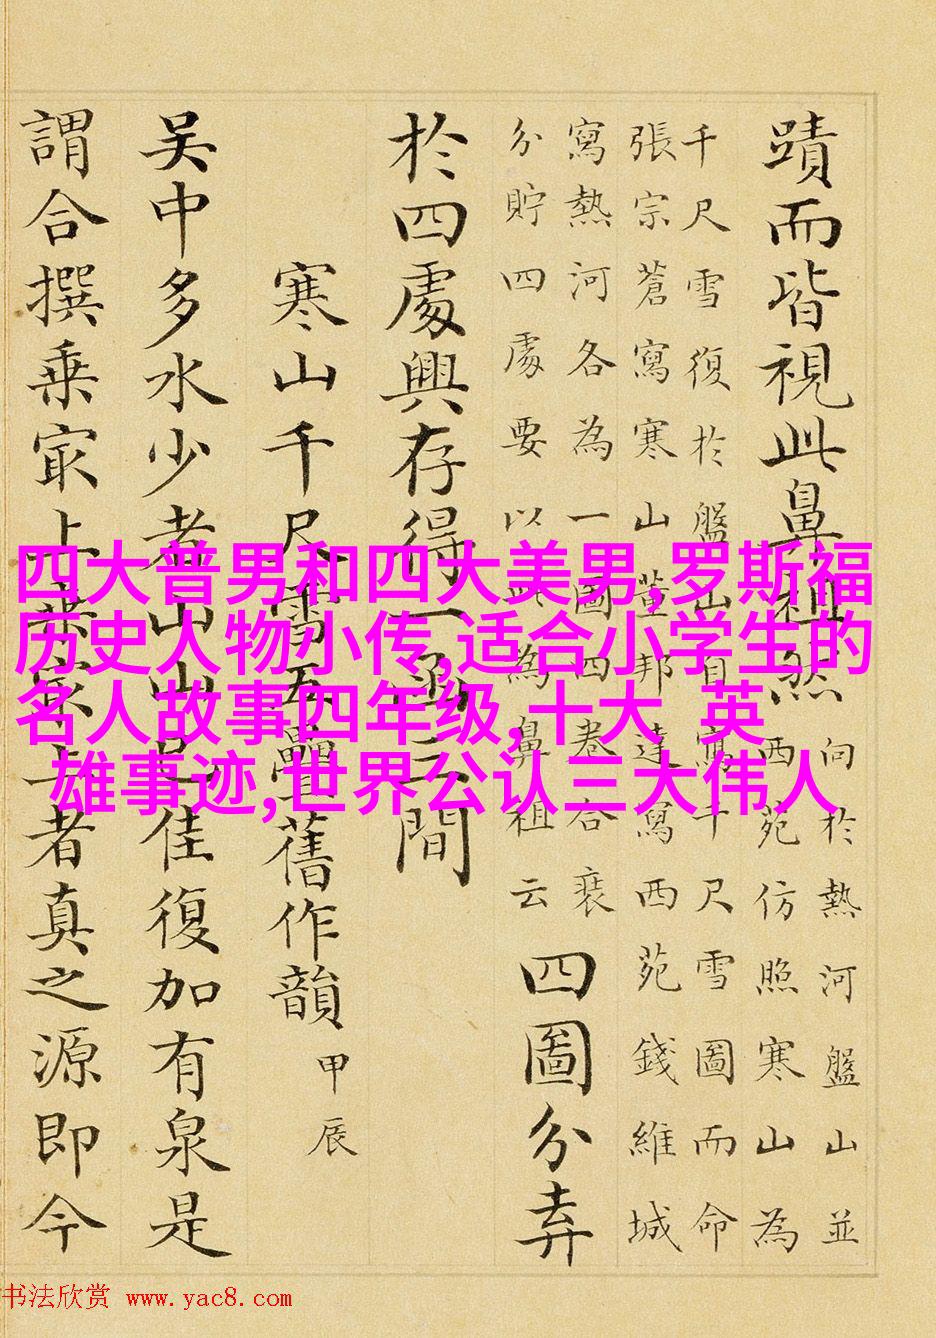 蹟而皆視此鼻祖然
向於熱河盤山並
西苑仿照寒山為
千尺雪復於盤山自寫千尺雪圖而命
張宗蒼寫寒山董邦達寫西苑錢維城
寫熱河各為一圖四卷合
分貯四處要以為鼻祖云
四圖分弆
於四處興存得一間
寒山千尺雪五疊舊作韻 甲辰
吳中多水少者山山佳復加有泉是
謂合撰乗冣上乗冣上者真之源即今
四大普男和四大美男,罗斯福
历史人物小传,适合小学生的
名人故事四年级,十大 英
雄事迹,世界公认三大伟人
书法欣赏 www.yac8.com